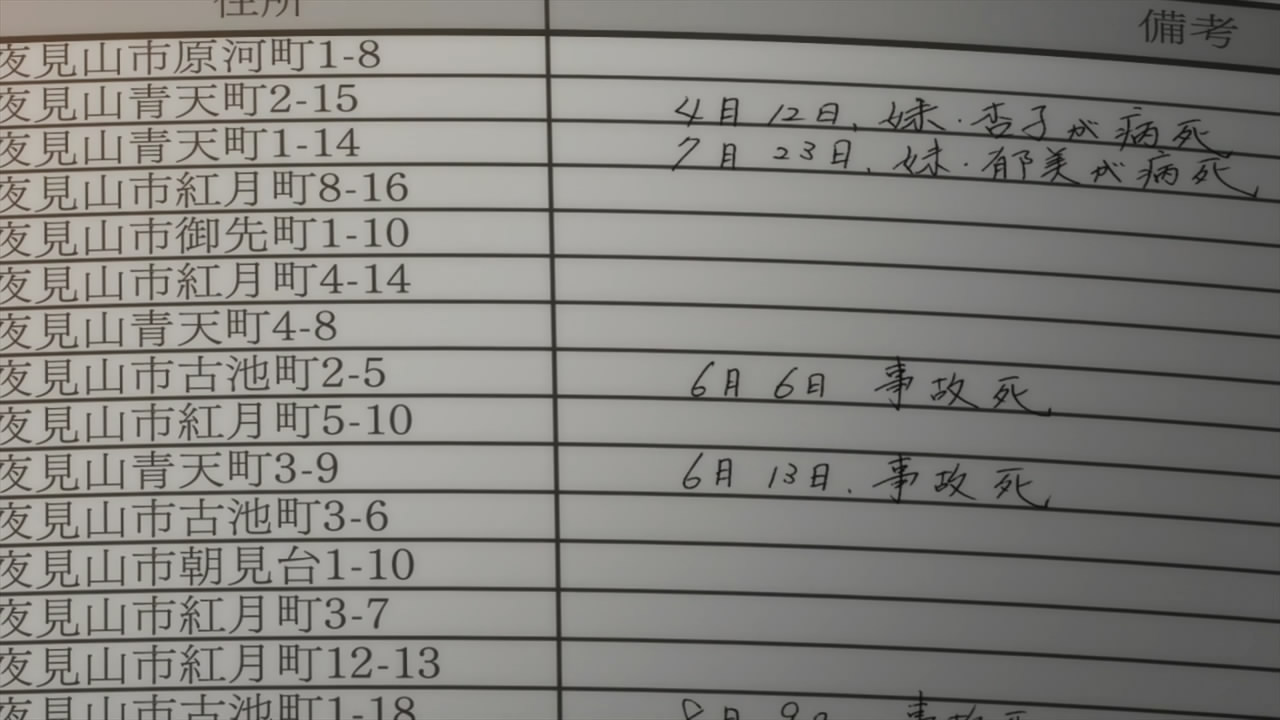 住所 備考
夜見山市原河町1-8
夜見山青天町2-15 4月12日、妹・杏子が病死
夜見山青天町1-14 7月23日、妹・郁美が病死
夜見山市紅月町8-16
夜見山市御先町1-10
夜見山市紅月町4-14
夜見山青天町4-8
夜見山市古池町2-5 6月6日 事故死
夜見山市紅月町5-10
夜見山青天町3-9 6月13日、事故死
夜見山市古池町3-6
夜見山市朝見台1-10
夜見山市紅月町3-7
夜見山市紅月町12-13
夜見山市古池町1-18